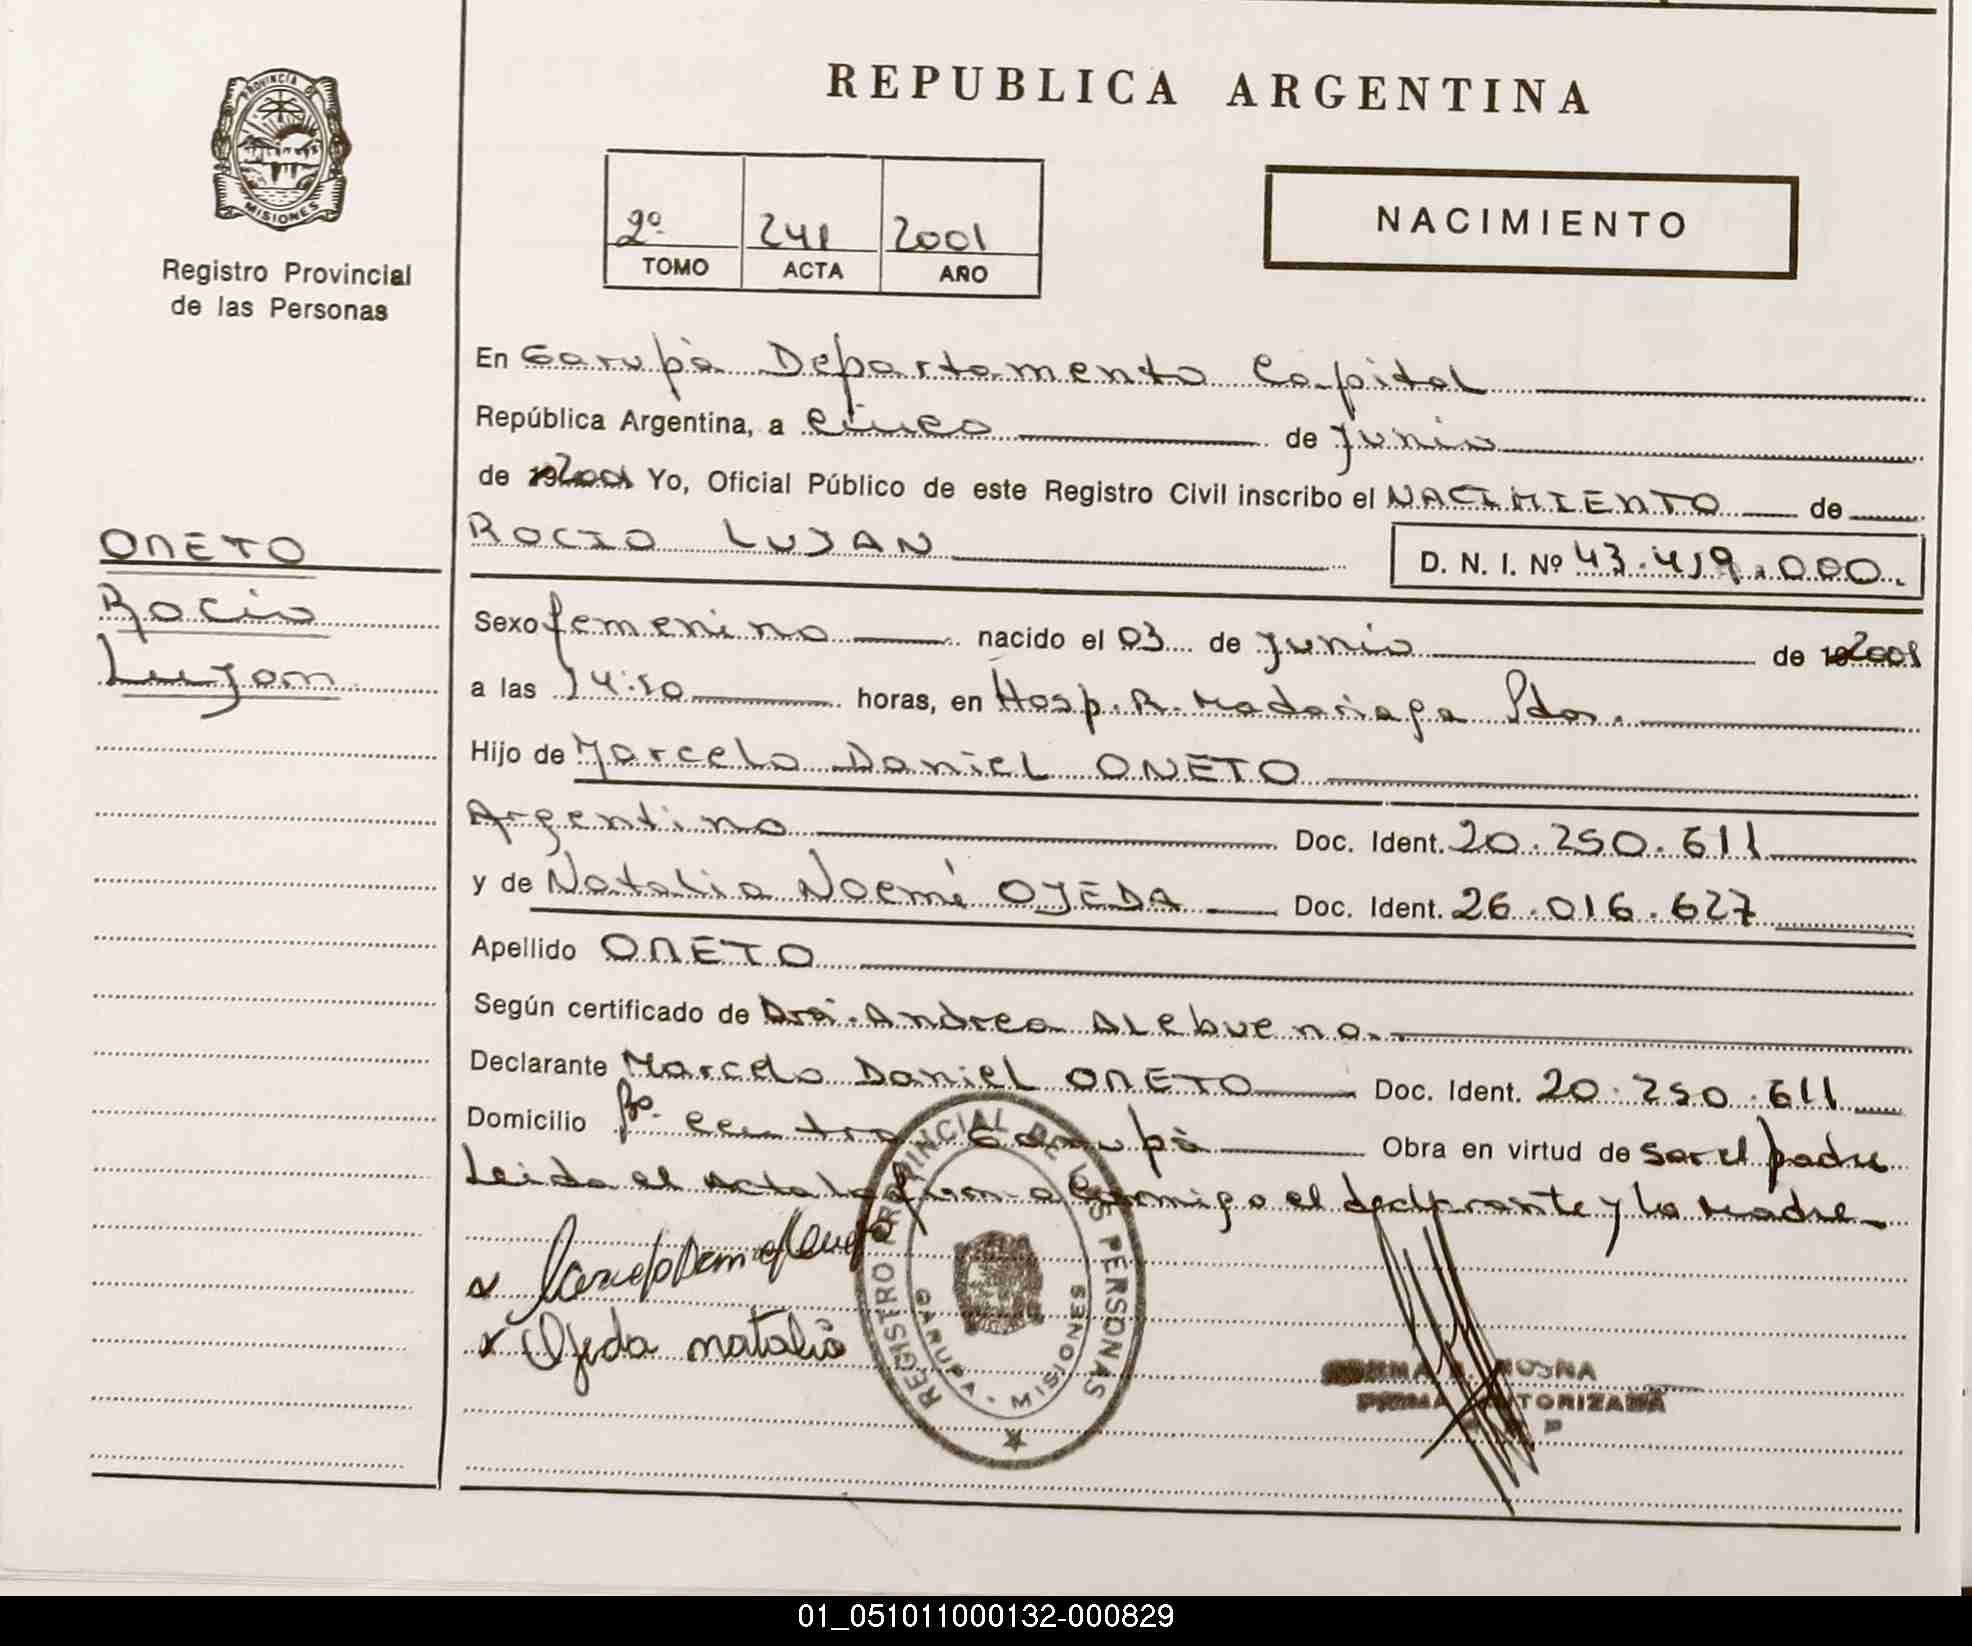 PROVINCIA DE
MISIONES
Registro Provincial
de las Personas
REPUBLICA ARGENTINA
2º 241 2001
TOMO ACTA AÑO
NACIMIENTO
En Garupá Departamento Capital
República Argentina, a Cinco de Junio
de 2001 Yo, Oficial Público de este Registro Civil inscribo el NACIMIENTO de
ROCIO LUJAN
D. N. I. Nº 43.419.000.
ONETO
Rocio
Lujan
Sexo femenino nacido el 03 de Junio de 2001
a las 14:50 horas, en Hosp. R. Madariaga Pdas.
Hijo de Marcelo Daniel ONETO
Argentino Doc. Ident. 20.250.611
y de Natalia Noemí OJEDA Doc. Ident. 26.016.627
Apellido ONETO
Según certificado de Dra. Andrea ALebueno.
Declarante Marcelo Daniel ONETO Doc. Ident. 20.250.611
Domicilio Bº. Centro Garupá Obra en virtud de ser el padre
Leida el Acta la firma conmigo el declarante y la Madre
Ojeda natalia
REGISTRO PROVINCIAL DE LAS PERSONAS
GARUPA - MISIONES
FIRMA AUTORIZADA
01_051011000132-000829